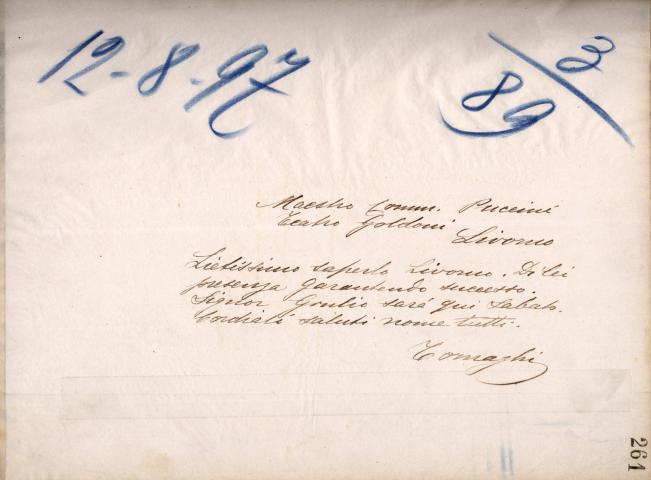 12-8-97
3/89
Maestro Comm. Puccini
Teatro Goldoni
Livorno
Lietissimo saperlo Livorno. Di lei
presenza garantendo successo.
Signor Giulio sarà qui sabato.
Cordiali saluti nome tutti.
Tornaghi
261